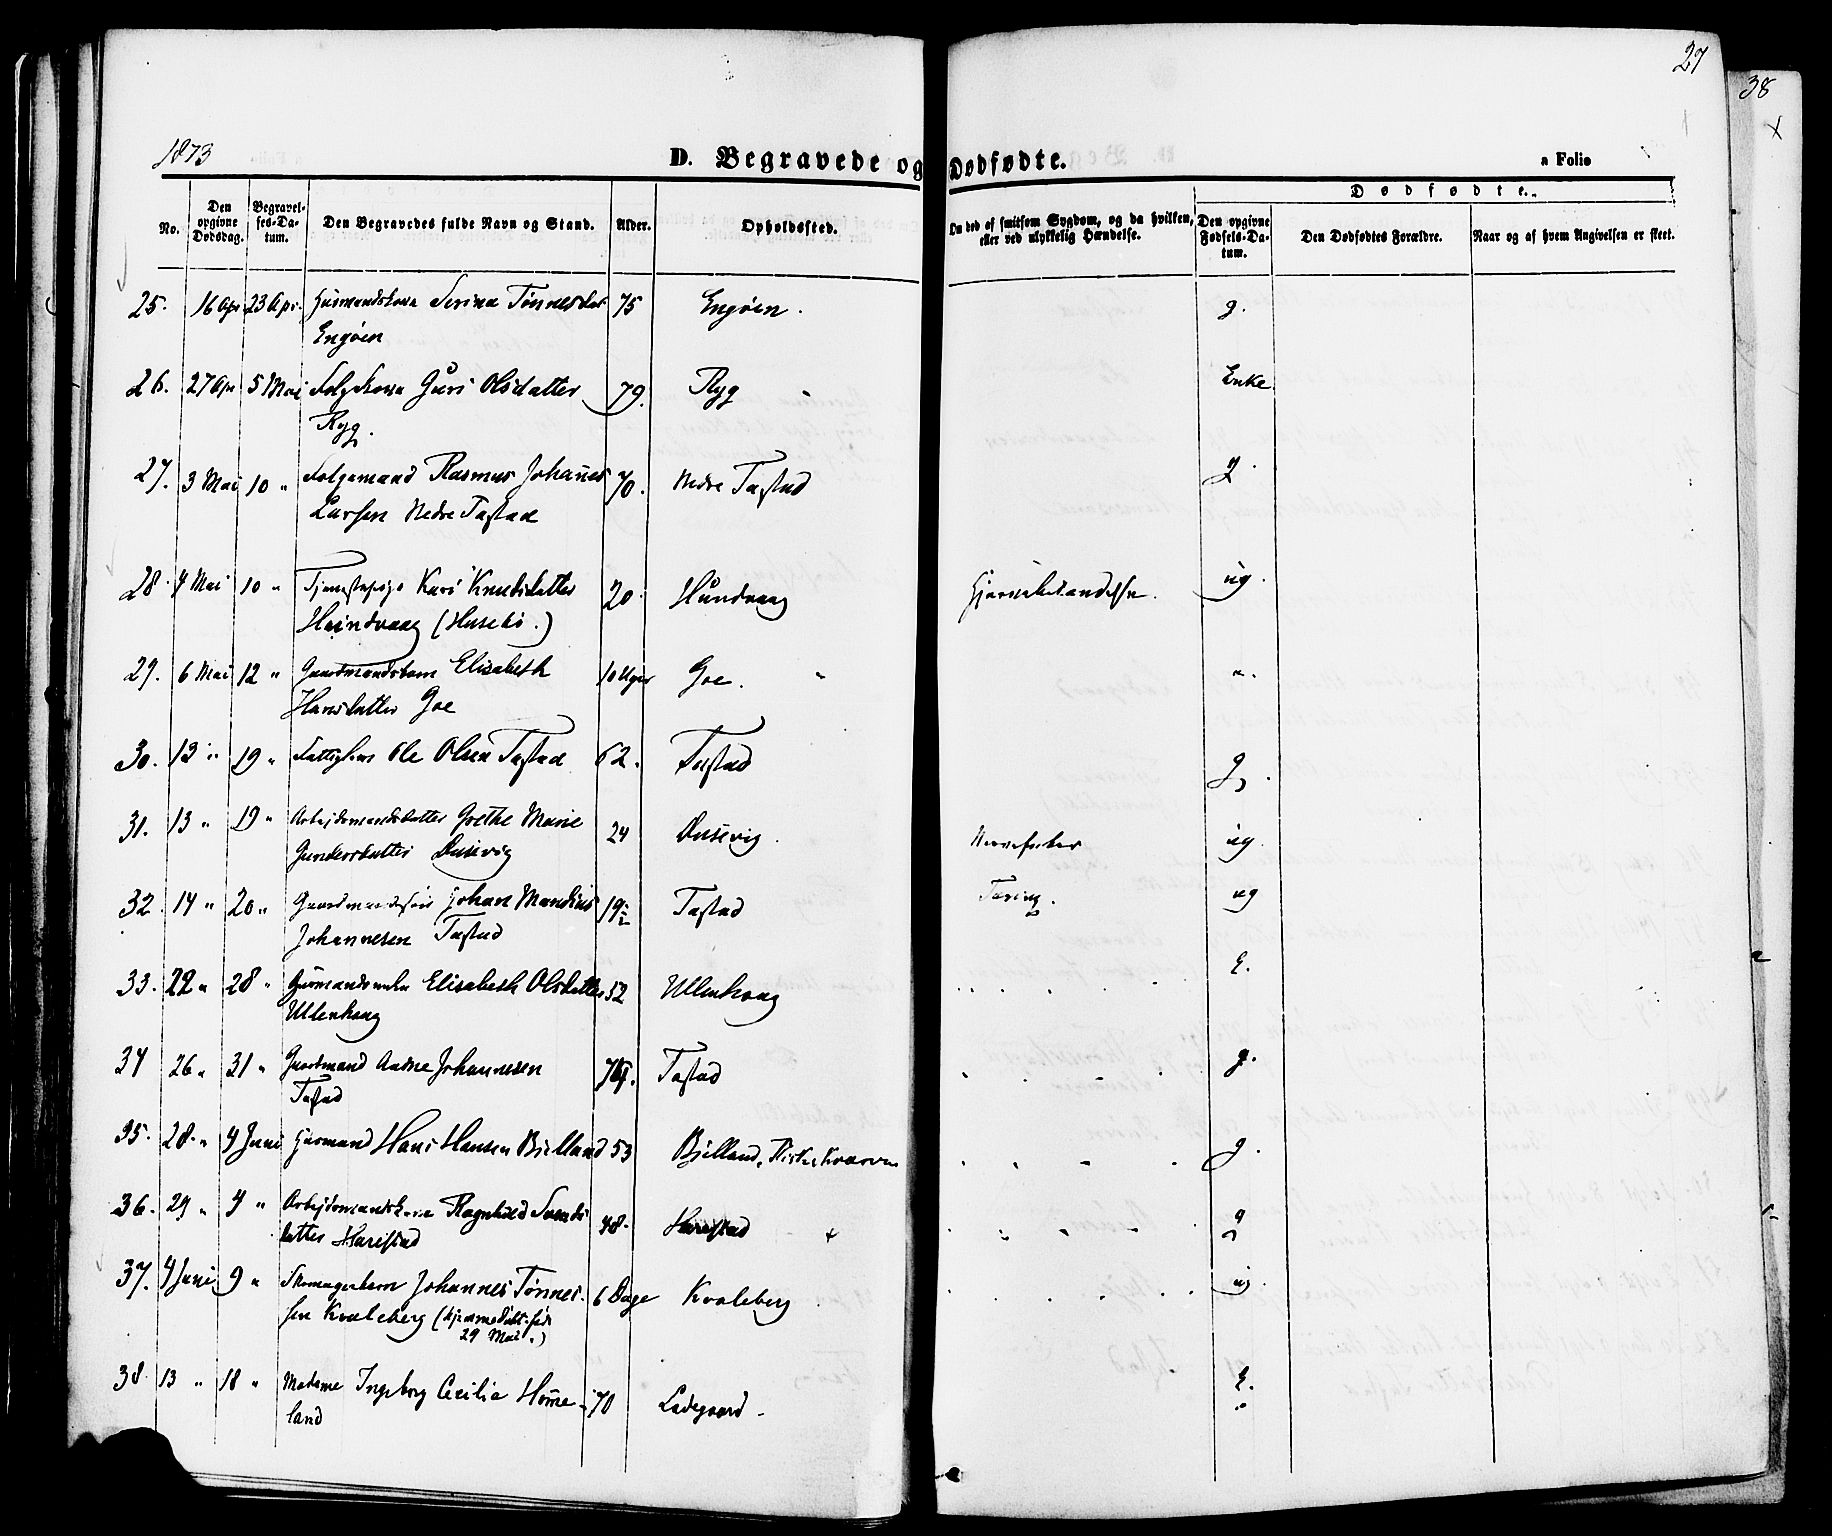 27
38
1873
D. Begravede og Dødfødte.
a Folio
No.
Den opgivne Dødsdag.
Begravelses-Datum.
Den Begravedes fulde Navn og Stand.
Alder.
Opholdssted.
Om død af smitsom Sygdom, og da hvilken, eller ved ulykkelig Hændelse.
Dødfødte.
Den opgivne Fødsels-Datum.
Den Dødfødtes Forældre.
Naar og af hvem Angivelsen er skeet.
25. 16 Apr 23 Apr. Huusmandskone Serina Tønnesdat. 75 Engøen. g.
Engøen
26. 27 Apr 5 Mai Folgekone Guri Olsdatter 79. Ryg Enke
Ryg.
27. 3 Mai 10 " Folgemand Rasmus Johannes 70. Nedre Tastad g.
Larsen Nedre Tastad
28. 4 Mai 10 " Tjenestepige Kari Knudsdatter 20. Hundvaag Hjernebetændelse. ug.
Hundvaag (Husebø.)
29. 6 Mai 12 " Gaardmandsbarn Elisabeth 10 Uger Goe. ".
Hansdatter Goe
30. 13 " 19 " Ole Olsen Tastad 62. Tastad g.
31. 13 " 19 " Arbejdsmandsdatter Grethe Marie 24 Dusevig. Nervefeber ug.
Gundersdatter Dusevig
32. 14 " 20 " Gaardmandssøn Johan Mandius 19½ Tastad Tæring. ug
Johannesen Tastad
33. 22 " 28 " Huusmandsenke Elisabeth Olsdatter 52 Ullenhaug E.
Ullenhaug
34 26 " 31 " Gaardmand Aadne Johannesen Tastad g.
Tastad
35. 28. " 4 Juni Huusmand Hans Hansen Bielland 53 Bjelland, g.
36. 29 " 4 " Arbejdsmandskone Ragnhild Svends 48. Harestad + g
datter Harestad
37. 4 Juni 9 " Skomagerbarn Johannes Tønnes- 6 Dage Kvaleberg ug.
sen Kvaleberg (hjemmedøbt. fød
29 Mai.)
38. 13 " 18 " Madame Ingeborg Cecilia Homme- 70 Ladegaard. E.
land